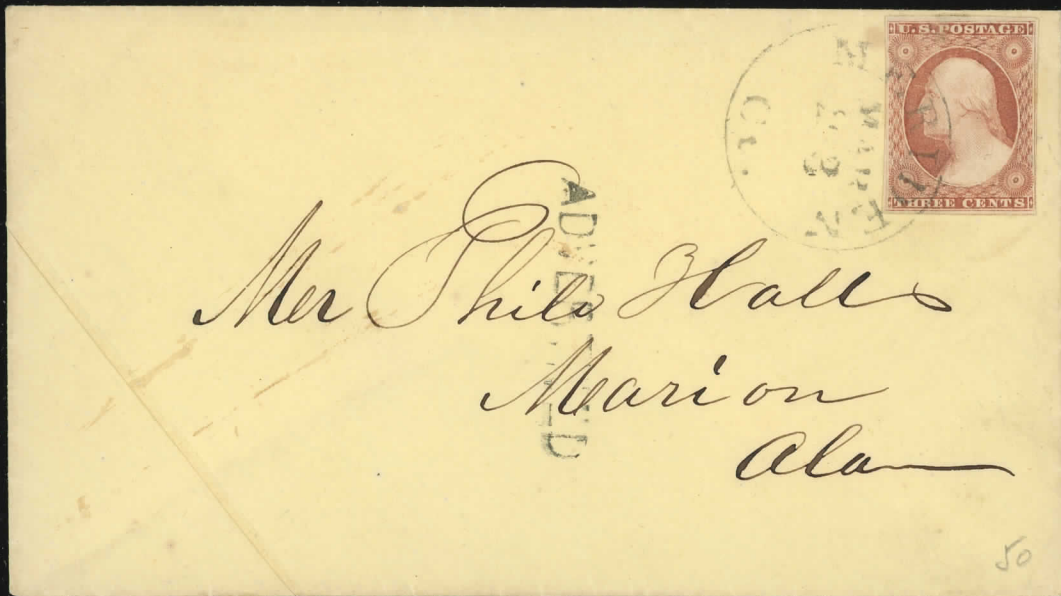 U.S. POSTAGE
THREE CENTS
MERIDEN
MAR
Ct.
Mr Philo Hall
Marion
Ala
50